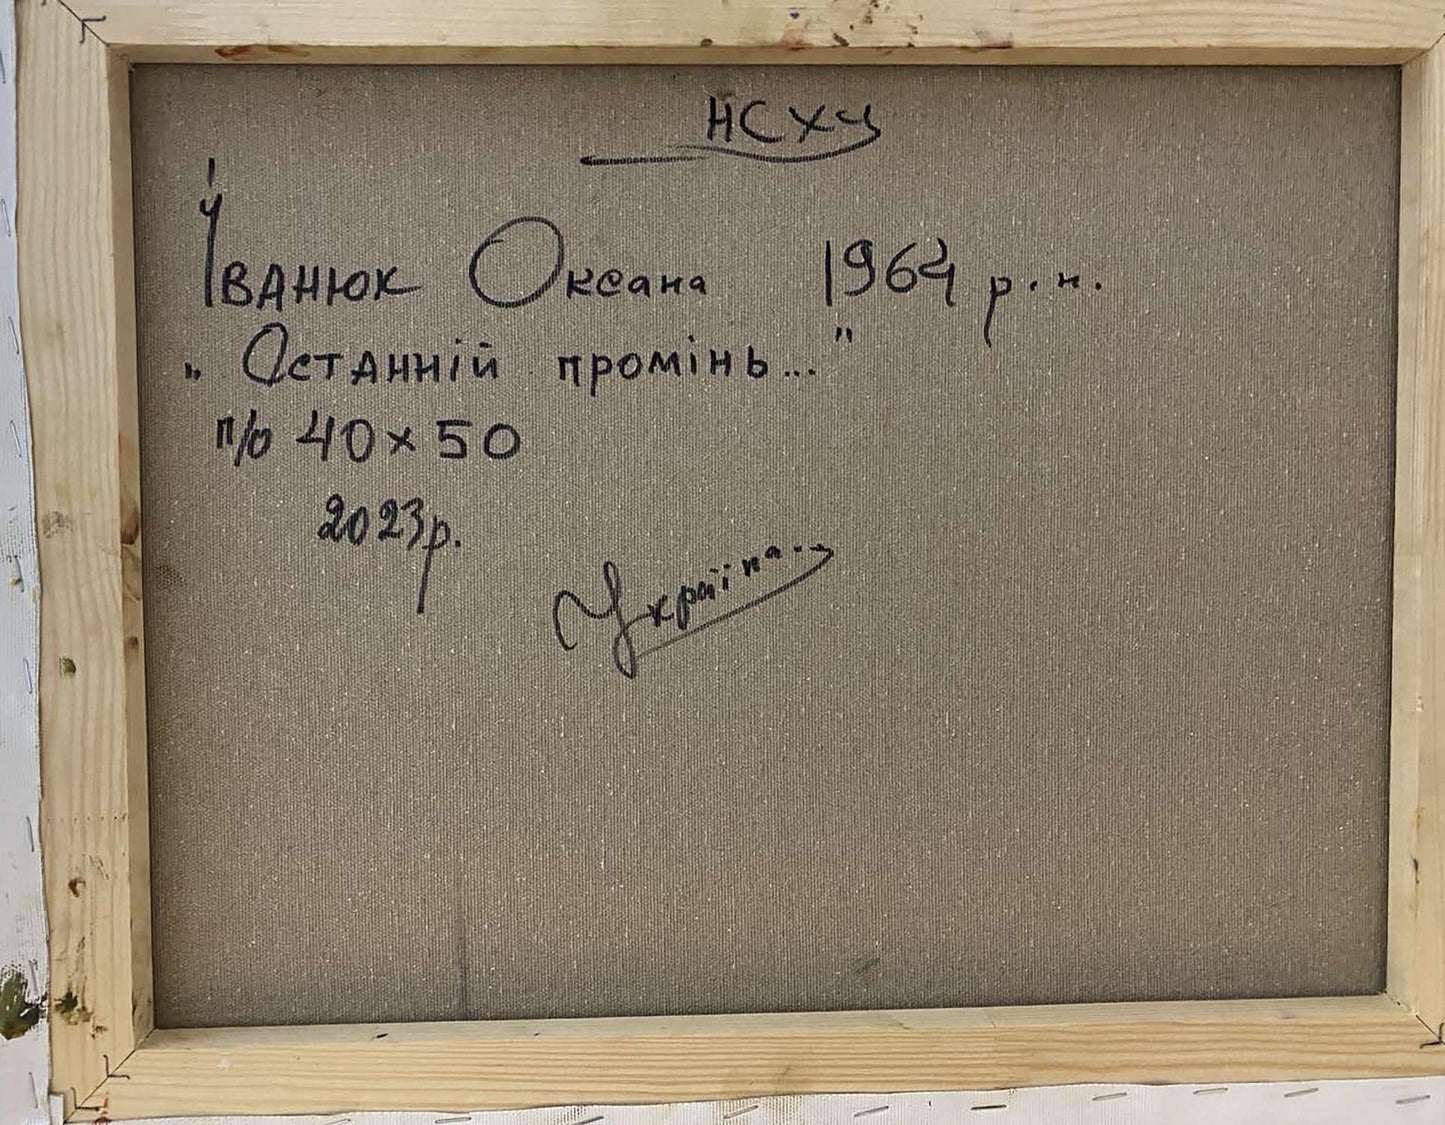 НСХУ
Іванюк Оксана 1964 р.н.
„Останній промінь..."
п/о 40х50
2023р.
Україна.